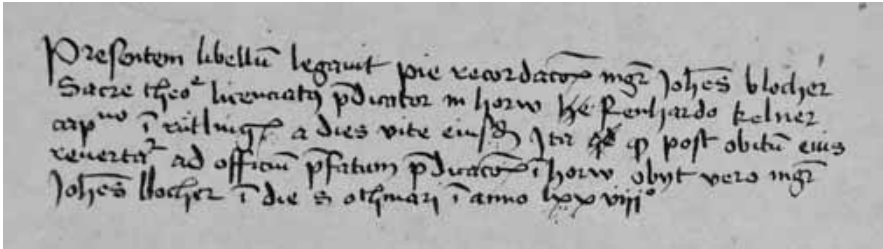 Presentem libellū legavit pie recordacōꝭ mgr̄ Joh̄es blocher
Sacre theoꝛ licenciatꝰ p̄dicator in horw hē Renhardo kelner
cap̄no ī rutlingꝭ a dies vite eiusd̄ Ita ꝙ post obitū eius
revertaꝛ ad officiū p̄fatum p̄dicacōꝭ ī horw obijt vero mgr̄
Joh̄es blocher ī die s othmari ī anno lxxviijº